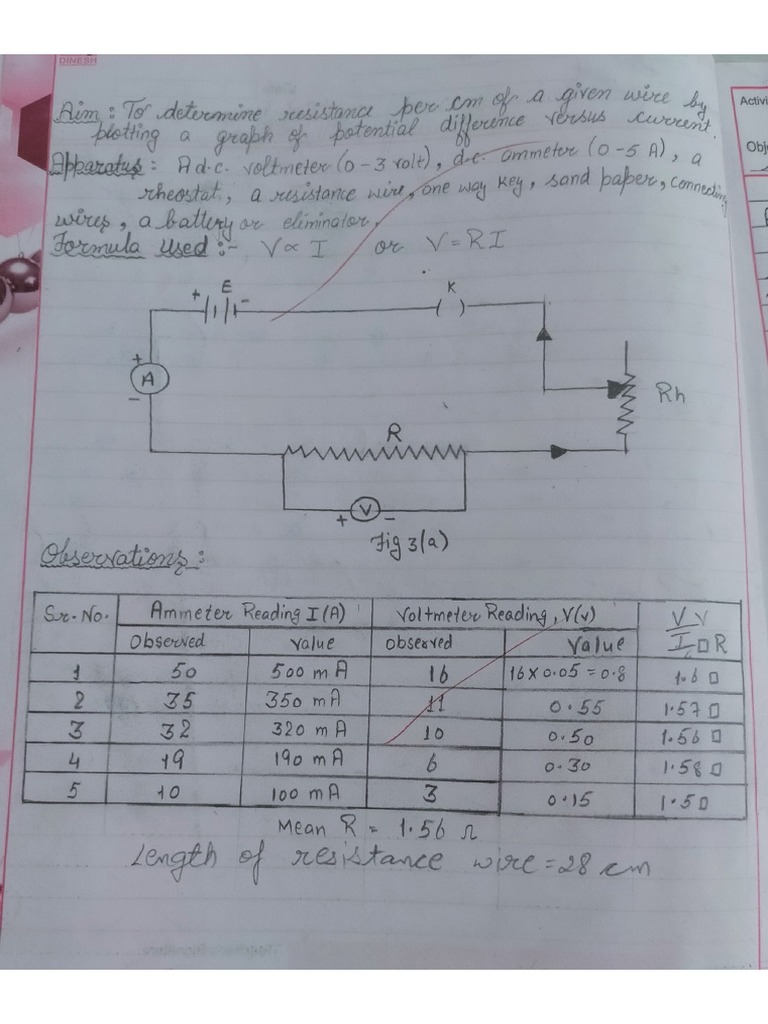 DINESH
Aim : To determine resistance per cm of a given wire by
plotting a graph of potential difference versus current.
Apparatus : A d.c. voltmeter (0-3 volt), d.c. ammeter (0-5 A), a
rheostat, a resistance wire, one way key, sand paper, connecting
wires, a battery or eliminator.
Formula used :- V ∝ I or V = RI
+ E - K
+ A -
Rh
R
+ V -
Fig 3(a)
Observations :
Sr. No. Ammeter Reading I (A) Voltmeter Reading, V(v) V V
Observed value observed Value I □ R
1 50 500 mA 16 16 x 0.05 = 0.8 1.6 □
2 35 350 mA 11 0.55 1.57 □
3 32 320 mA 10 0.50 1.56 □
4 19 190 mA 6 0.30 1.58 □
5 10 100 mA 3 0.15 1.50
Mean R = 1.56 Ω
Length of resistance wire = 28 cm
Activi
Obj